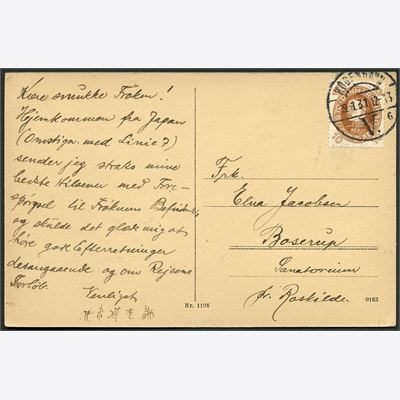 Kære smukke Frøken!
Hjemkommen fra Japan
(Omstign. med Linie 7)
sender jeg straks mine
bedste Hilsener med Fore-
spørgsel til Frøknens Befindende
og skulde det glæde mig at
høre gode Efterretninger
desangaaende og om Rejsens
Forløb.
Venligst
Frk.
Elna Jacobsen
Boserup
Sanatorium
pr. Roskilde.
KØBENHAVN
6
Nr. 1108
0163